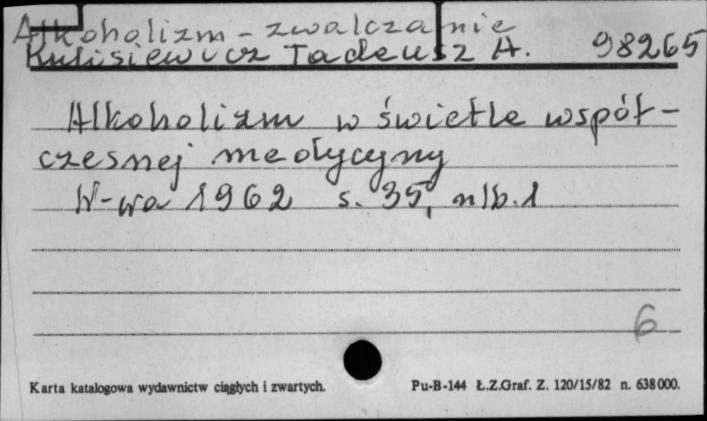 Alkoholizm - zwalczanie
Kulisiewicz Tadeusz A. 98265
Alkoholizm w świetle współ-
czesnej medycyny
W-wa 1962 s. 35, nlb. 1
6
Karta katalogowa wydawnictw ciągłych i zwartych. Pu-B-144 Ł.Z.Graf. Z. 120/15/82 n. 638000.